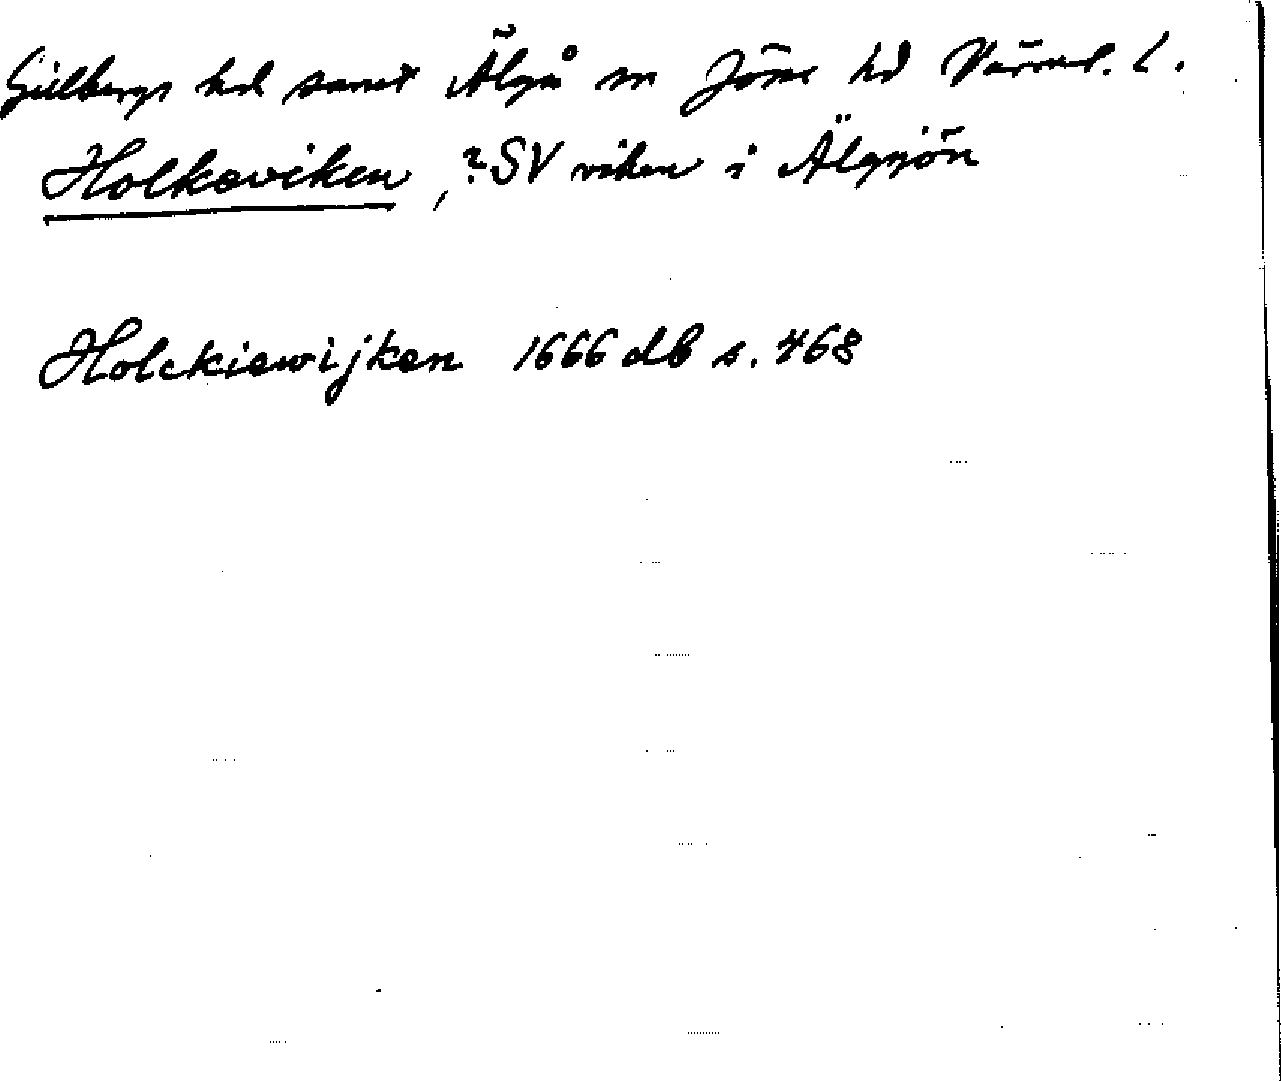 Gillbergs hd samt Älgå sn Jösse hd Värml. l.
Holkeviken, ?SV viken i Älgsjön
Holckiewijken 1666 db s. 468